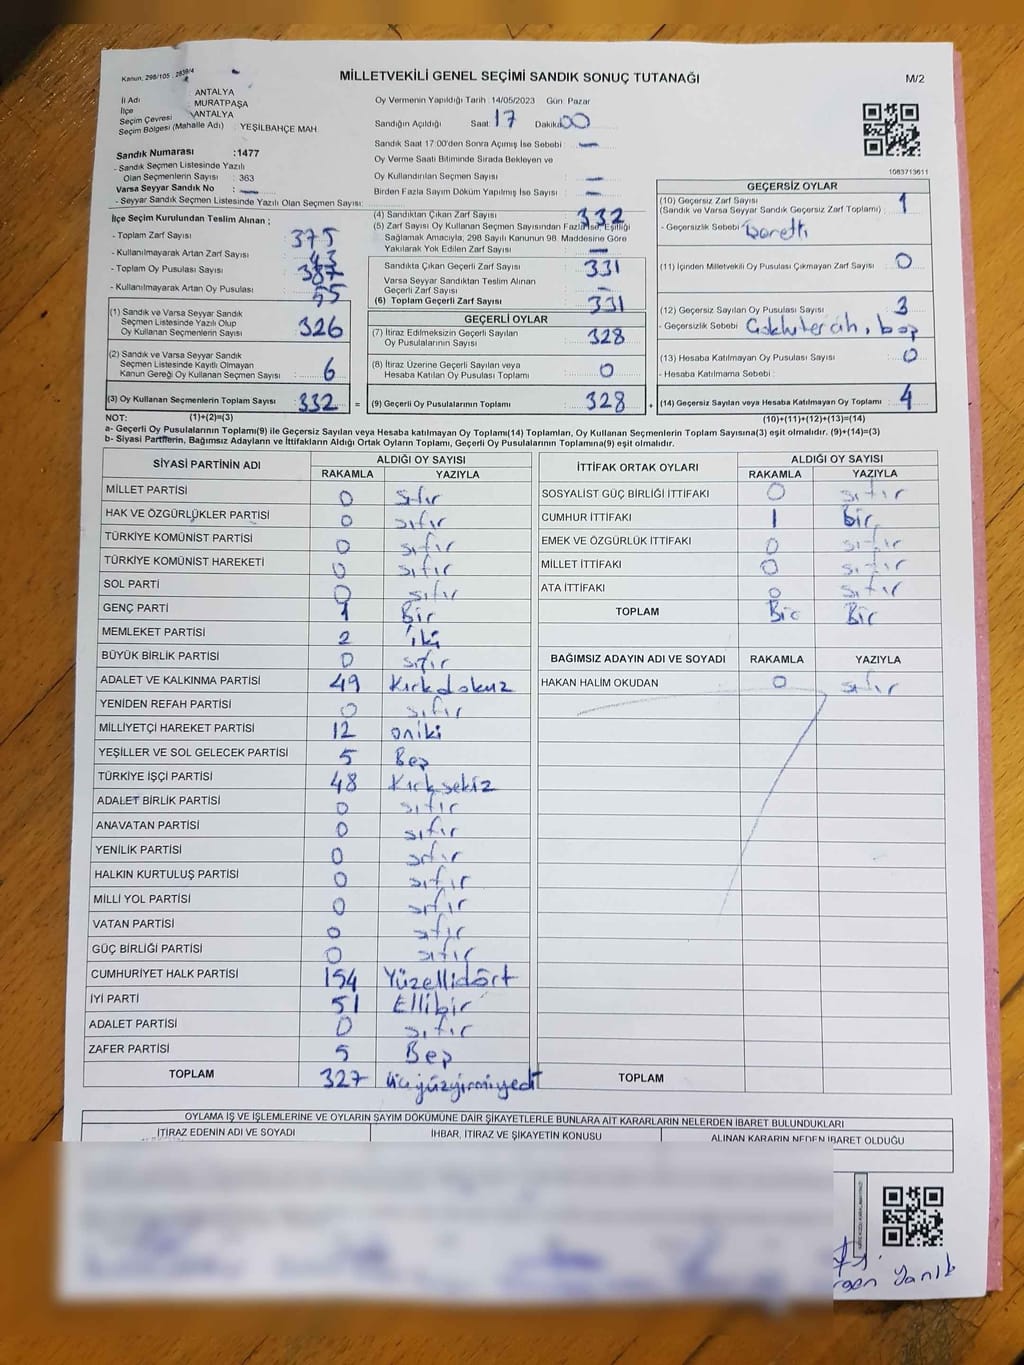 Kanun, 298/105 , 2839/4
MİLLETVEKİLİ GENEL SEÇİMİ SANDIK SONUÇ TUTANAĞI
M/2
İl Adı ANTALYA
İlçe MURATPAŞA
Seçim Çevresi ANTALYA
Seçim Bölgesi (Mahalle Adı) : YEŞİLBAHÇE MAH.
Sandık Numarası :1477
- Sandık Seçmen Listesinde Yazılı
Olan Seçmenlerin Sayısı : 363
Varsa Seyyar Sandık No : —
- Seyyar Sandık Seçmen Listesinde Yazılı Olan Seçmen Sayısı:
Oy Vermenin Yapıldığı Tarih :14/05/2023 Gün Pazar
Sandığın Açıldığı Saat: 17 Dakika: 00
Sandık Saat 17:00'den Sonra Açımış İse Sebebi : —
Oy Verme Saati Bitiminde Sırada Bekleyen ve
Oy Kullandırılan Seçmen Sayısı : —
Birden Fazla Sayım Döküm Yapılmış İse Sayısı : —
1083713611
İlçe Seçim Kurulundan Teslim Alınan ;
- Toplam Zarf Sayısı : 375
- Kullanılmayarak Artan Zarf Sayısı : 43
- Toplam Oy Pusulası Sayısı : 387
- Kullanılmayarak Artan Oy Pusulası : 55
(1) Sandık ve Varsa Seyyar Sandık
Seçmen Listesinde Yazılı Olup
Oy Kullanan Seçmenlerin Sayısı : 326
(2) Sandık ve Varsa Seyyar Sandık
Seçmen Listesinde Kayıtlı Olmayan
Kanun Gereği Oy Kullanan Seçmen Sayısı : 6
(3) Oy Kullanan Seçmenlerin Toplam Sayısı : 332 =
(4) Sandıktan Çıkan Zarf Sayısı : 332
(5) Zarf Sayısı Oy Kullanan Seçmen Sayısından Fazla İse, Eşitliği
Sağlamak Amacıyla, 298 Sayılı Kanunun 98. Maddesine Göre
Yakılarak Yok Edilen Zarf Sayısı : —
Sandıkta Çıkan Geçerli Zarf Sayısı : 331
Varsa Seyyar Sandıktan Teslim Alınan
Geçerli Zarf Sayısı : —
(6) Toplam Geçerli Zarf Sayısı : 331
GEÇERLİ OYLAR
(7) İtiraz Edilmeksizin Geçerli Sayılan
Oy Pusulalarının Sayısı : 328
(8) İtiraz Üzerine Geçerli Sayılan veya
Hesaba Katılan Oy Pusulası Toplamı : 0
(9) Geçerli Oy Pusulalarının Toplamı : 328 +
GEÇERSİZ OYLAR
(10) Geçersiz Zarf Sayısı : 1
(Sandık ve Varsa Seyyar Sandık Geçersiz Zarf Toplamı)
- Geçersizlik Sebebi
(11) İçinden Milletvekili Oy Pusulası Çıkmayan Zarf Sayısı : 0
(12) Geçersiz Sayılan Oy Pusulası Sayısı : 3
- Geçersizlik Sebebi : Çoklu tercih, boş
(13) Hesaba Katılmayan Oy Pusulası Sayısı : 0
- Hesaba Katılmama Sebebi :
(14) Geçersiz Sayılan veya Hesaba Katılmayan Oy Toplamı : 4
NOT: (1)+(2)=(3) (10)+(11)+(12)+(13)=(14)
a- Geçerli Oy Pusulalarının Toplamı(9) ile Geçersiz Sayılan veya Hesaba katılmayan Oy Toplamı(14) Toplamları, Oy Kullanan Seçmenlerin Toplam Sayısına(3) eşit olmalıdır. (9)+(14)=(3)
b- Siyasi Partilerin, Bağımsız Adayların ve İttifakların Aldığı Ortak Oyların Toplamı, Geçerli Oy Pusulalarının Toplamına(9) eşit olmalıdır.
SİYASİ PARTİNİN ADI ALDIĞI OY SAYISI
RAKAMLA YAZIYLA
MİLLET PARTİSİ 0 sıfır
HAK VE ÖZGÜRLÜKLER PARTİSİ 0 sıfır
TÜRKİYE KOMÜNİST PARTİSİ 0 sıfır
TÜRKİYE KOMÜNİST HAREKETİ 0 sıfır
SOL PARTİ 0 sıfır
GENÇ PARTİ 1 Bir
MEMLEKET PARTİSİ 2 iki
BÜYÜK BİRLİK PARTİSİ 0 sıfır
ADALET VE KALKINMA PARTİSİ 49 Kırkdokuz
YENİDEN REFAH PARTİSİ 0 sıfır
MİLLİYETÇİ HAREKET PARTİSİ 12 oniki
YEŞİLLER VE SOL GELECEK PARTİSİ 5 Beş
TÜRKİYE İŞÇİ PARTİSİ 48 Kırksekiz
ADALET BİRLİK PARTİSİ 0 sıfır
ANAVATAN PARTİSİ 0 sıfır
YENİLİK PARTİSİ 0 sıfır
HALKIN KURTULUŞ PARTİSİ 0 sıfır
MİLLİ YOL PARTİSİ 0 sıfır
VATAN PARTİSİ 0 sıfır
GÜÇ BİRLİĞİ PARTİSİ 0 sıfır
CUMHURİYET HALK PARTİSİ 154 Yüzellidört
İYİ PARTİ 51 Ellibir
ADALET PARTİSİ 0 sıfır
ZAFER PARTİSİ 5 Beş
TOPLAM 327 üçyüzyirmiyedi
İTTİFAK ORTAK OYLARI ALDIĞI OY SAYISI
RAKAMLA YAZIYLA
SOSYALİST GÜÇ BİRLİĞİ İTTİFAKI 0 sıfır
CUMHUR İTTİFAKI 1 Bir
EMEK VE ÖZGÜRLÜK İTTİFAKI 0 sıfır
MİLLET İTTİFAKI 0 sıfır
ATA İTTİFAKI 0 sıfır
TOPLAM Bir Bir
BAĞIMSIZ ADAYIN ADI VE SOYADI RAKAMLA YAZIYLA
HAKAN HALİM OKUDAN 0 sıfır
TOPLAM
OYLAMA İŞ VE İŞLEMLERİNE VE OYLARIN SAYIM DÖKÜMÜNE DAİR ŞİKAYETLERLE BUNLARA AİT KARARLARIN NELERDEN İBARET BULUNDUKLARI
İTİRAZ EDENİN ADI VE SOYADI İHBAR, İTİRAZ VE ŞİKAYETİN KONUSU ALINAN KARARIN NEDEN İBARET OLDUĞU
Yanık